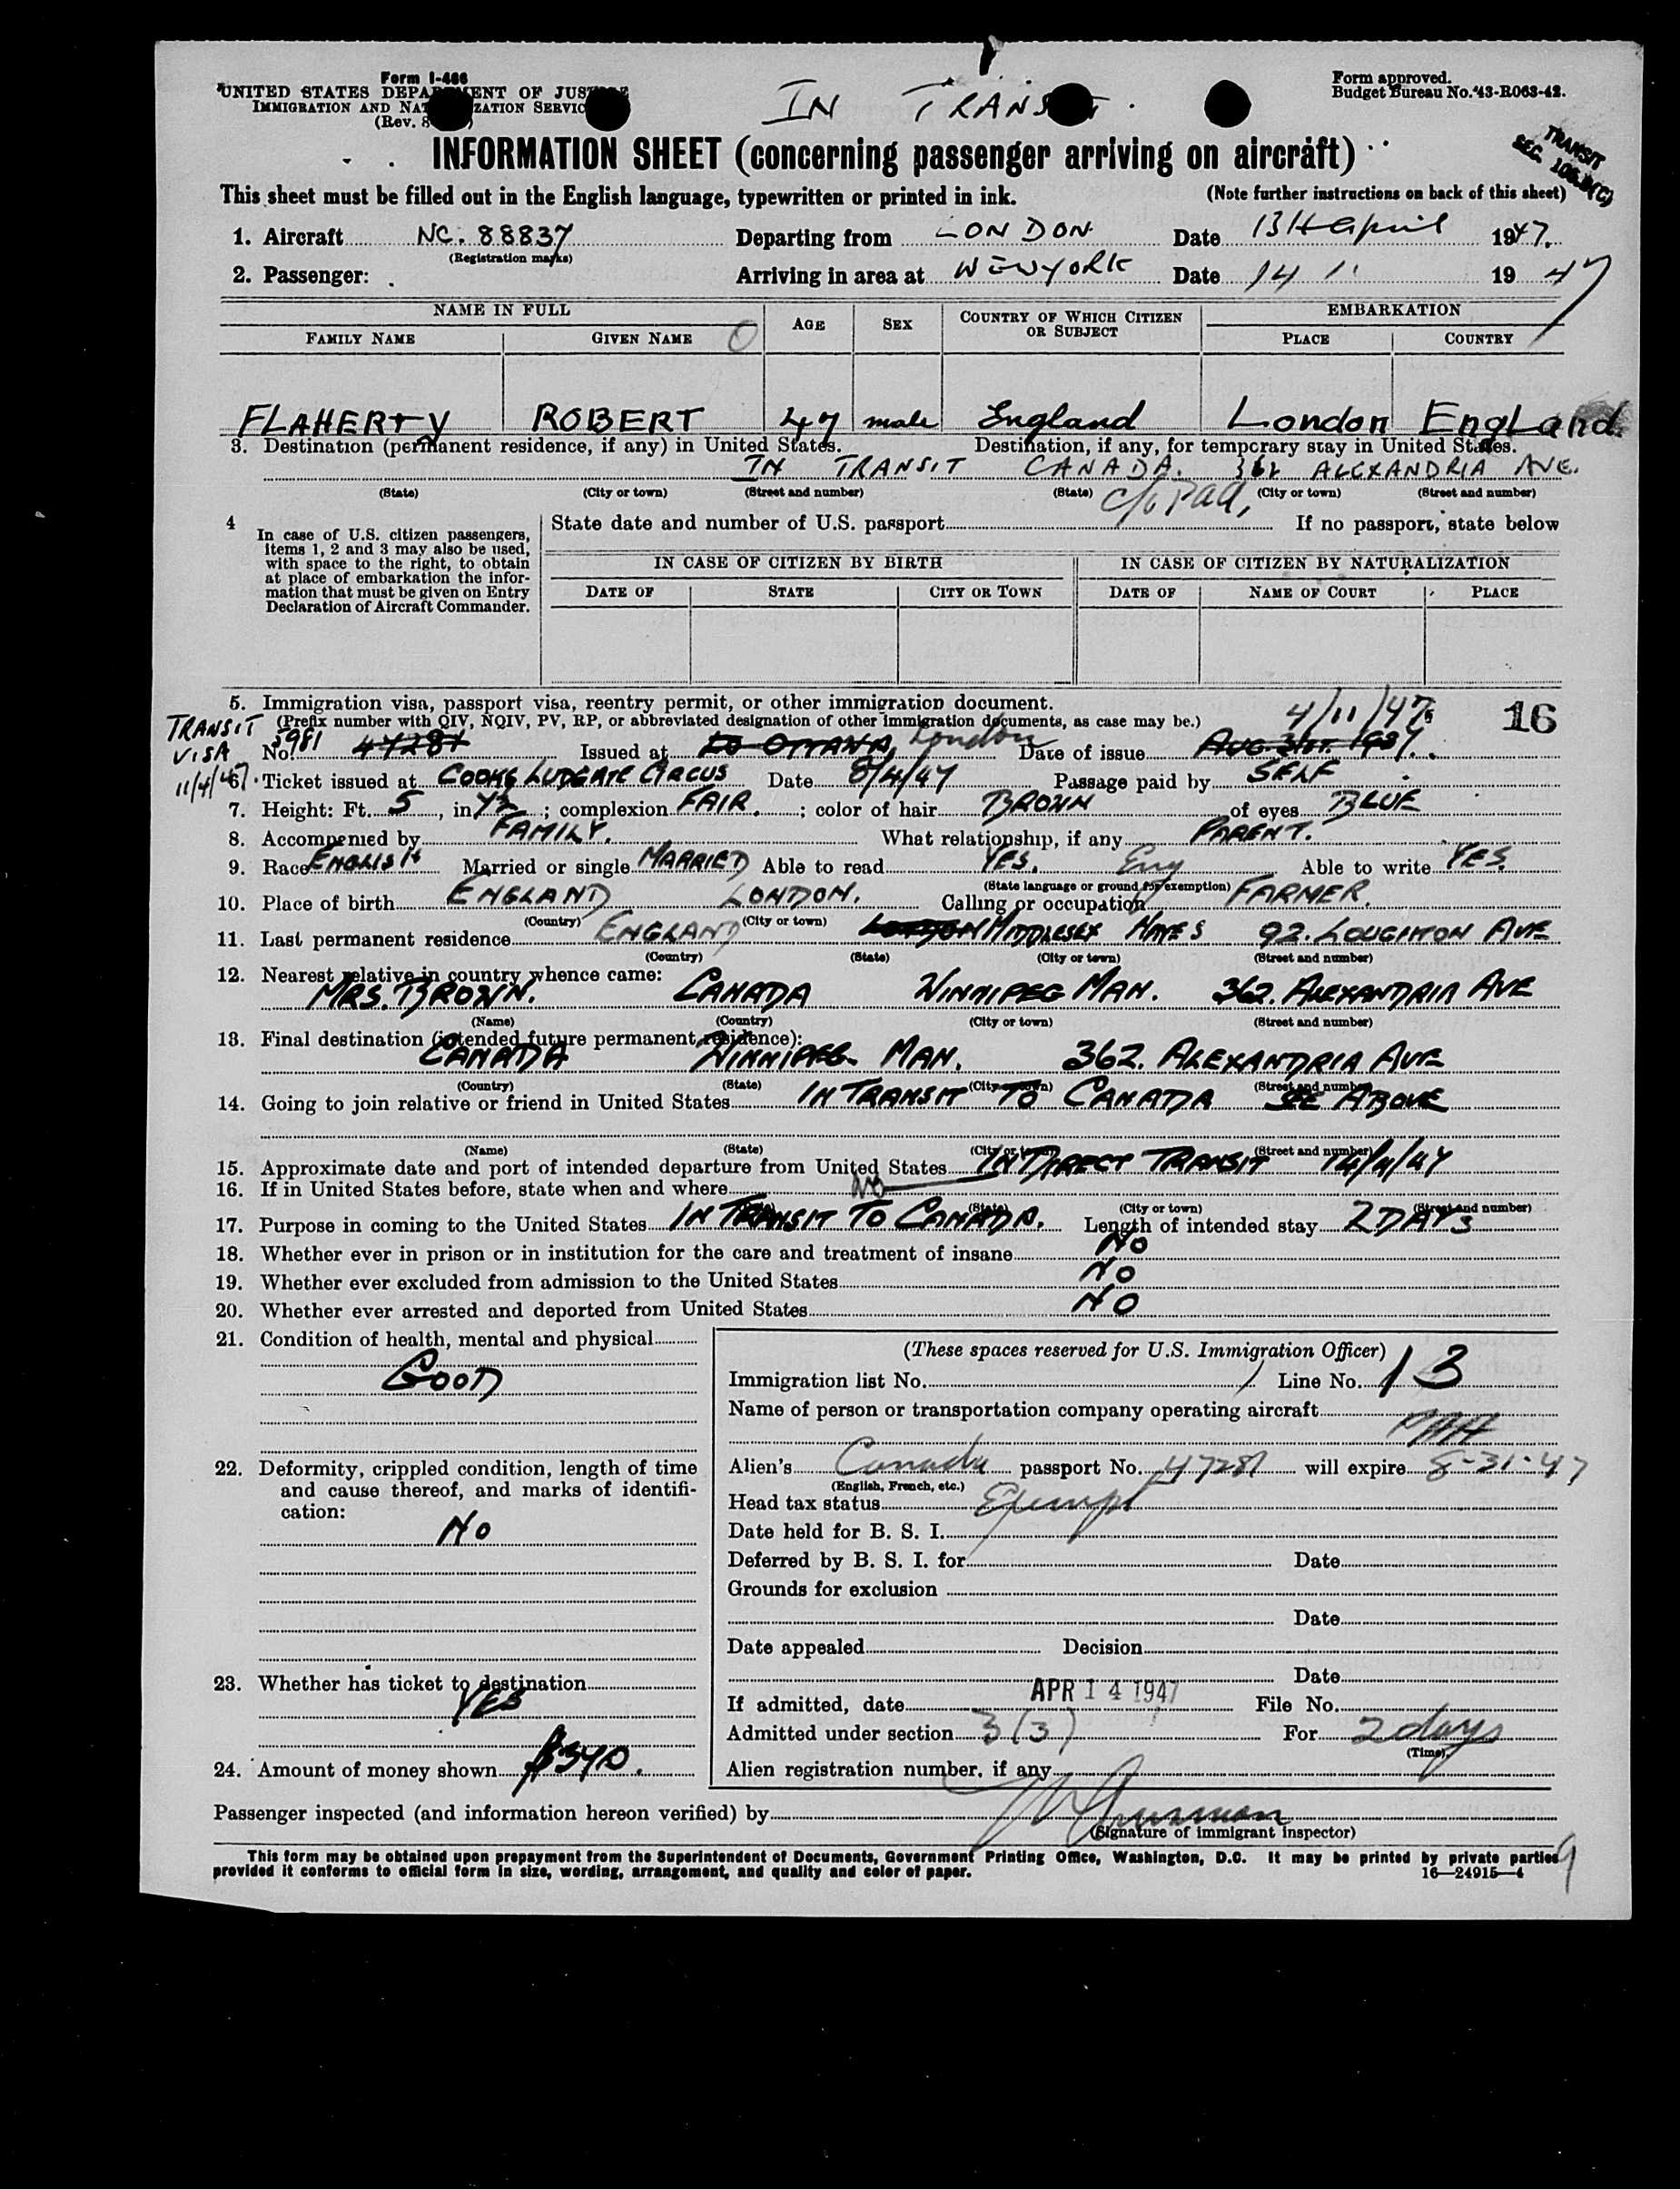 Form I-466
UNITED STATES DEPARTMENT OF JUSTICE
IMMIGRATION AND NATURALIZATION SERVICE
(Rev. 8
IN TRANSIT.
Form approved.
Budget Bureau No. 43-R063-42.
TRANSIT
SEC.
INFORMATION SHEET (concerning passenger arriving on aircraft)
This sheet must be filled out in the English language, typewritten or printed in ink. (Note further instructions on back of this sheet)
1. Aircraft NC. 88837 Departing from LONDON Date 13th april 1947.
(Registration marks)
2. Passenger: Arriving in area at NEW YORK Date 14 " 1947
NAME IN FULL AGE SEX COUNTRY OF WHICH CITIZEN OR SUBJECT EMBARKATION
FAMILY NAME GIVEN NAME PLACE COUNTRY
FLAHERTY ROBERT 47 male England London England
3. Destination (permanent residence, if any) in United States. Destination, if any, for temporary stay in United States.
IN TRANSIT CANADA. 362 ALEXANDRIA AVE.
(State) (City or town) (Street and number) (State) (City or town) (Street and number)
4 In case of U.S. citizen passengers, items 1, 2 and 3 may also be used, with space to the right, to obtain at place of embarkation the information that must be given on Entry Declaration of Aircraft Commander.
State date and number of U.S. passport If no passport, state below
IN CASE OF CITIZEN BY BIRTH IN CASE OF CITIZEN BY NATURALIZATION
DATE OF STATE CITY OR TOWN DATE OF NAME OF COURT PLACE
5. Immigration visa, passport visa, reentry permit, or other immigration document.
(Prefix number with QIV, NQIV, PV, RP, or abbreviated designation of other immigration documents, as case may be.) 4/11/47 16
TRANSIT VISA 5981
No. 47281 Issued at OTTAWA, London Date of issue AUG. 31st. 1937.
11/4/47
6. Ticket issued at COOKS LUDGATE CIRCUS Date 8/4/47 Passage paid by SELF
7. Height: Ft. 5, in 4½; complexion FAIR.; color of hair BROWN of eyes BLUE
8. Accompanied by FAMILY. What relationship, if any PARENT.
9. Race ENGLISH Married or single MARRIED Able to read YES. Eng Able to write YES.
(State language or ground for exemption)
10. Place of birth ENGLAND LONDON. Calling or occupation FARMER.
(Country) (City or town)
11. Last permanent residence ENGLAND LONDON MIDDLESEX HAYES 92. LOUGHTON AVE
(Country) (State) (City or town) (Street and number)
12. Nearest relative in country whence came:
MRS. BROWN. CANADA WINNIPEG MAN. 362. ALEXANDRIA AVE
(Name) (Country) (City or town) (Street and number)
13. Final destination (intended future permanent residence):
CANADA WINNIPEG MAN. 362. ALEXANDRIA AVE
(Country) (State) (City or town) (Street and number)
14. Going to join relative or friend in United States IN TRANSIT TO CANADA SEE ABOVE
(Name) (State) (City or town) (Street and number)
15. Approximate date and port of intended departure from United States IN DIRECT TRANSIT 14/4/47
16. If in United States before, state when and where No
(State) (City or town) (Street and number)
17. Purpose in coming to the United States IN TRANSIT TO CANADA. Length of intended stay 2 DAYS
18. Whether ever in prison or in institution for the care and treatment of insane NO
19. Whether ever excluded from admission to the United States NO
20. Whether ever arrested and deported from United States NO
21. Condition of health, mental and physical
GOOD
22. Deformity, crippled condition, length of time and cause thereof, and marks of identification:
NO
23. Whether has ticket to destination
YES
24. Amount of money shown $340.
(These spaces reserved for U.S. Immigration Officer)
Immigration list No. 1 Line No. 13
Name of person or transportation company operating aircraft
Alien's Canada passport No. 47281 will expire 8-31-47
(English, French, etc.)
Head tax status Exempt
Date held for B. S. I.
Deferred by B. S. I. for Date
Grounds for exclusion
Date
Date appealed Decision
Date
If admitted, date APR 14 1947 File No.
Admitted under section 3(3) For 2 days
(Time)
Alien registration number, if any
Passenger inspected (and information hereon verified) by
(Signature of immigrant inspector)
This form may be obtained upon prepayment from the Superintendent of Documents, Government Printing Office, Washington, D.C. It may be printed by private parties
provided it conforms to official form in size, wording, arrangement, and quality and color of paper. 16—24915-4
9